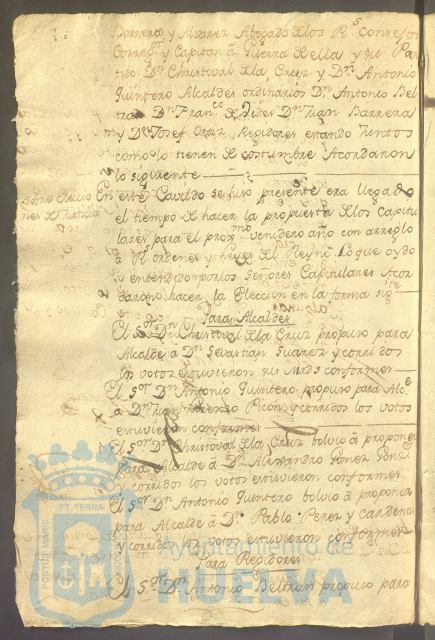 Barrera y Alvarez Abogado de los Rs Consejos
Corregr y Capitan à Guerra de ella y su Par
tido Dn Christoval de la Cruz y Dn Antonio
Quintero Alcaldes ordinarios Dn Antonio Bel
tran Dn Franco Dn Juan Barrera
y Dn Josef Ortiz Regidores estando juntos
como lo tienen de costumbre Acordaron
lo siguiente
Sobre eleccio
nes de Justicia
En este Cavildo se hizo presente era llegado
el tiempo de hacer la propuesta de los Capitu
lares para el proxmo venidero año con arreglo
a Rs ordenes y leyes del Reyno lo que oydo
y entendido por los Señores Capitulares Acor
daron hacer la Eleccion en la forma sigte
Para Alcaldes
El Sor Dn Christoval de la Cruz propuso para
Alcalde à Dn Sevastian Suarez y corridos
los votos estuvieron sus mrds conformes
El Sor Dn Antonio Quintero propuso para Alce
à Dn Juan Picon y corridos los votos
estuvieron conformes
El Sor Dn Christoval de la Cruz bolvio à proponer
para Alcalde à Dn Alexandro Gomez
y corridos los votos estuvieron conformes
El Sor Dn Antonio Quintero bolvio à proponer
para Alcalde à Dn Pablo Perez y Cardenas
y corridos los votos estuvieron conformes
Para Regidores
El Sor Dn Antonio Beltran propuso para
Ayuntamiento de
HUELVA
PORTUS MARIS
ET TERRAE